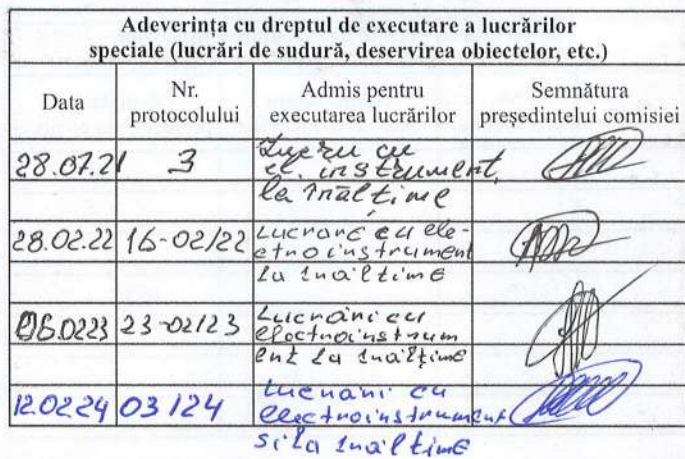 Adeverința cu dreptul de executare a lucrărilor
speciale (lucrări de sudură, deservirea obiectelor, etc.)
Data
Nr.
protocolului
Admis pentru
executarea lucrărilor
Semnătura
președintelui comisiei
28.07.21 3 Lucru cu
el. instrument,
la înălțime
28.02.22 16-02/22 Lucrare cu ele-
ctroinstrument
la înălțime
06.0223 23-02/23 Lucrări cu
electroinstrum
ent la înălțime
12.02.24 03/24 Lucrări cu
electroinstrument
si la înălțime